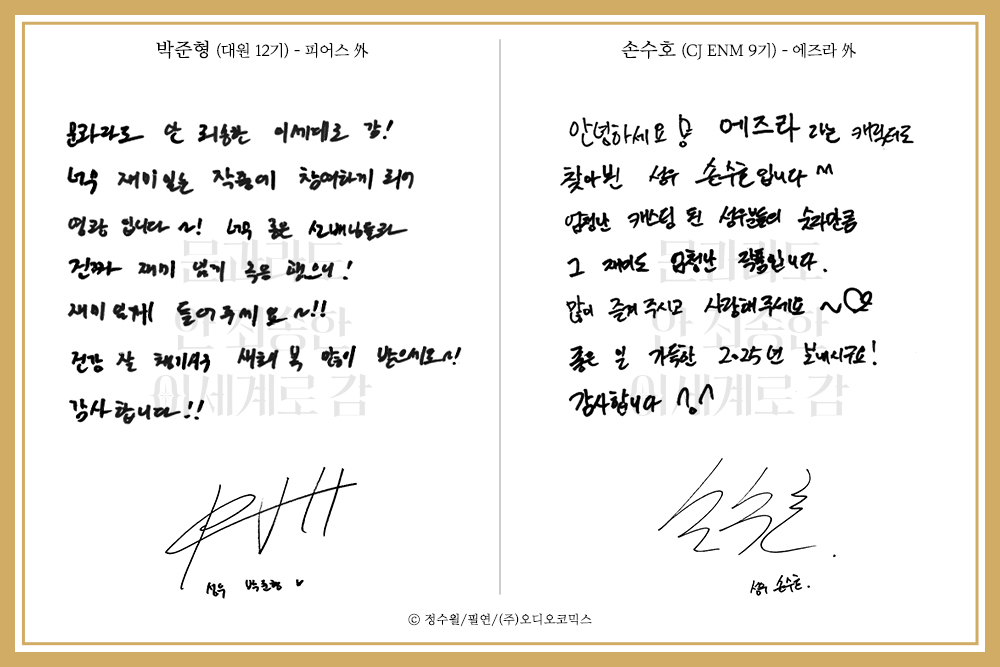 박준형 (대원 12기) - 피어스 外
문과라도 안 죄송한 이세계로 감!
너무 재미있는 작품에 참여하게 되어
영광입니다~! 너무 좋은 선배님들과
진짜 재미있게 녹음 했으니!
재미있게 들어주세요~!!
건강 잘 챙기시구 새해 복 많이 받으세요~!
감사합니다!!
성우 박준형
손수호 (CJ ENM 9기) - 에즈라 外
안녕하세요 에즈라 라는 캐릭터로
찾아뵌 성우 손수호입니다 ^^
엄청난 캐스팅 된 성우분들의 숫자만큼
그 재미도 엄청난 작품입니다.
많이 즐겨주시고 사랑해주세요~♡
좋은 일 가득한 2025년 보내시구요!
감사합니다 ^^
손수호.
성우 손수호.
문과라도
안 죄송한
이세계로 감
문과라도
안 죄송한
이세계로 감
ⓒ 정수월/필연/(주)오디오코믹스